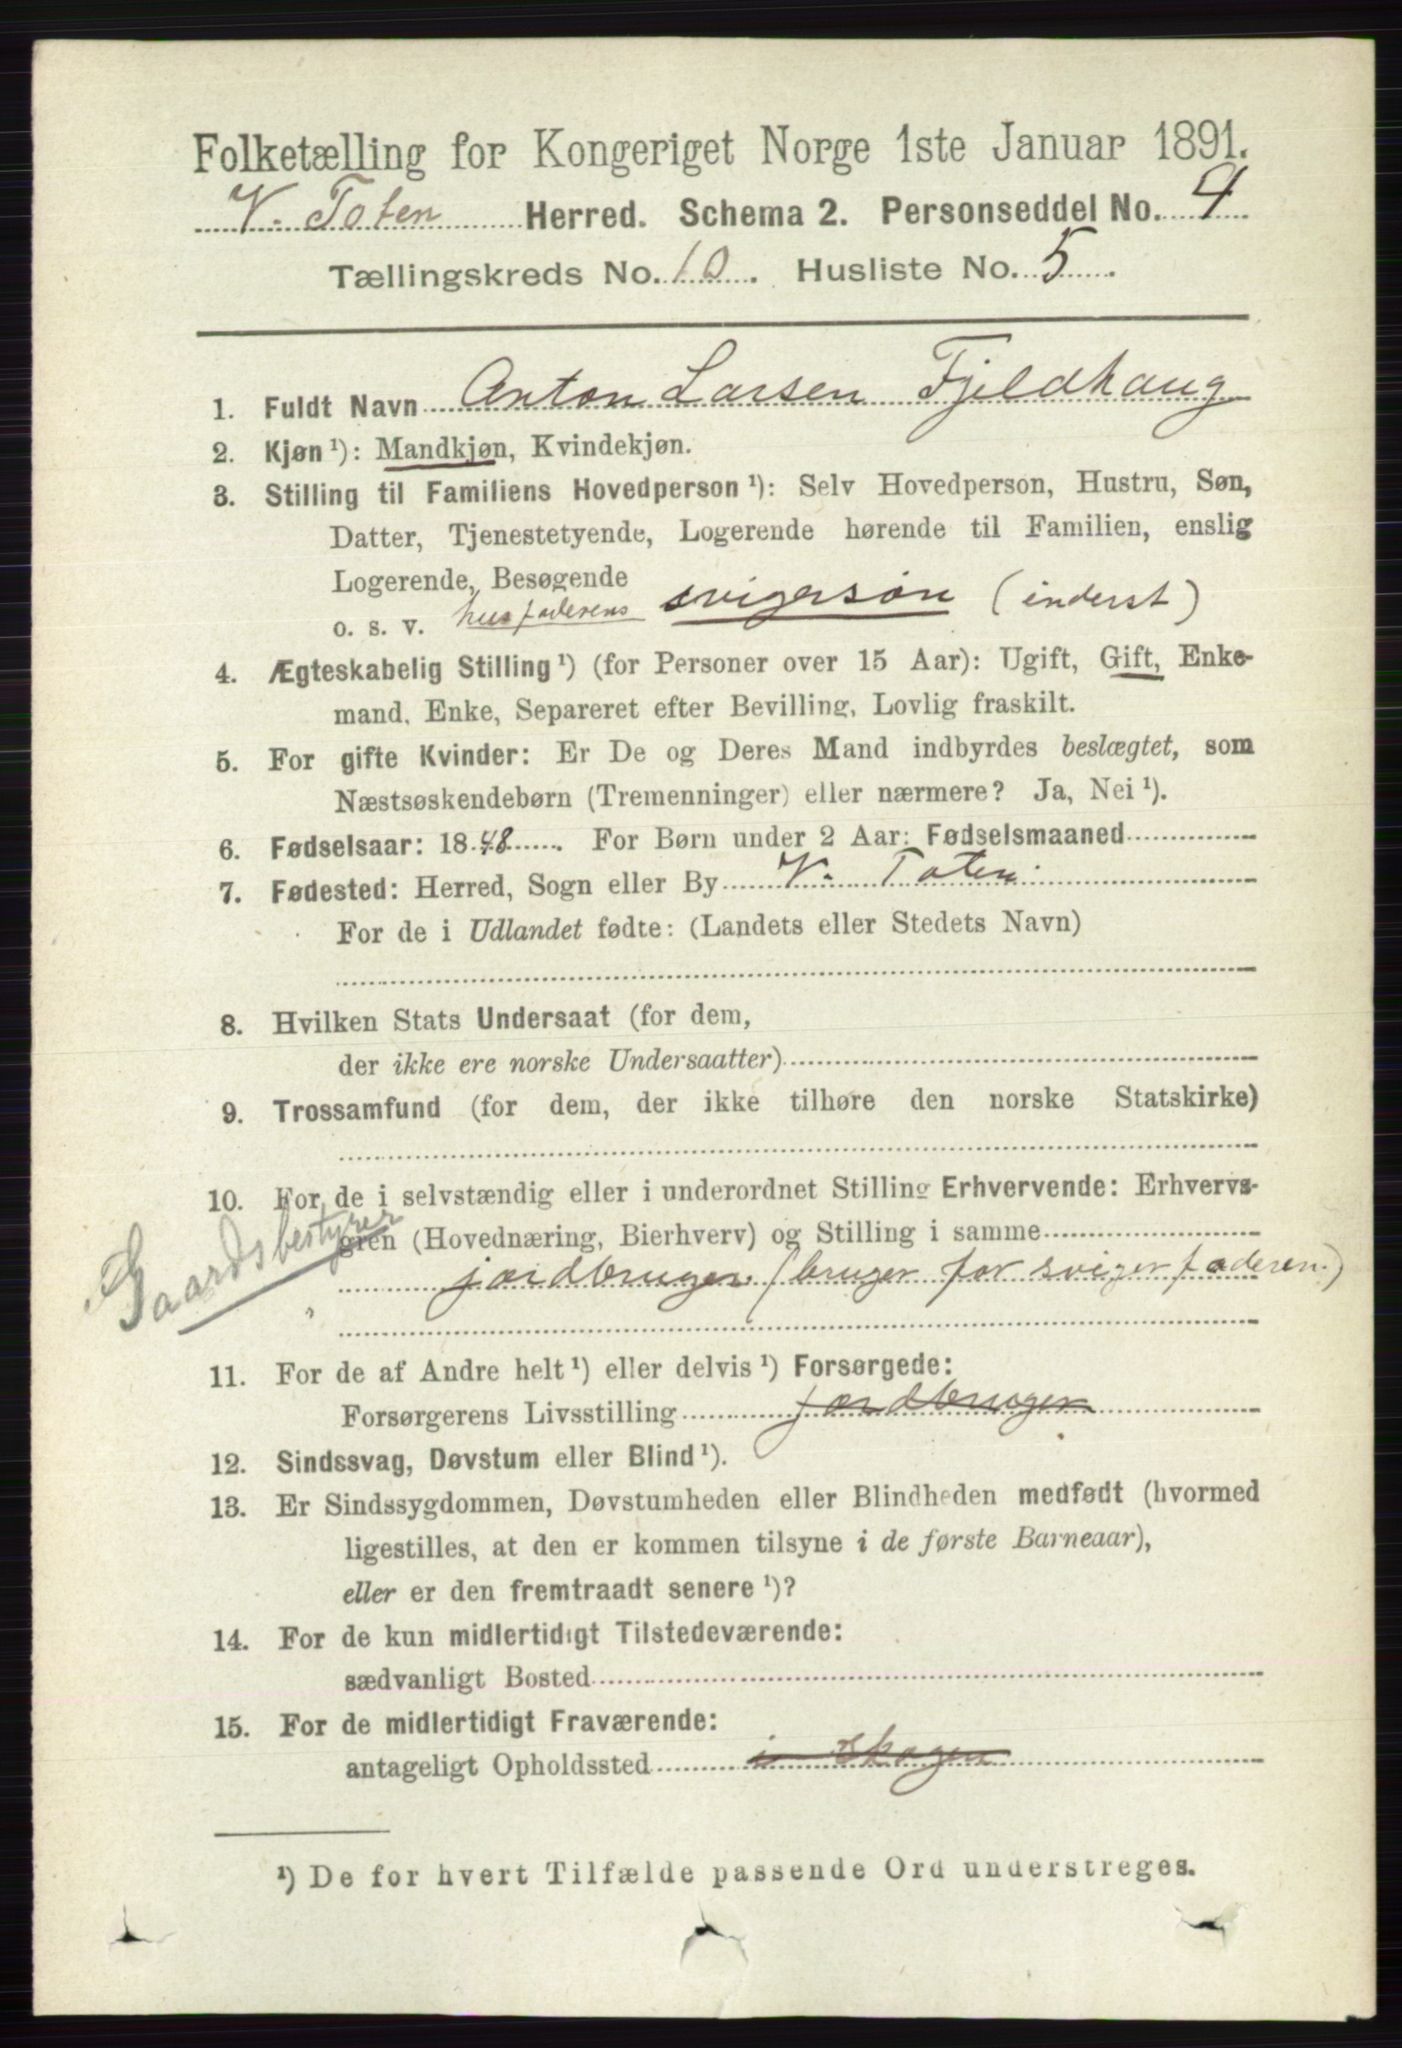 Folketælling for Kongeriget Norge 1ste Januar 1891.
V. Toten Herred. Schema 2. Personseddel No. 4
Tællingskreds No. 10. Husliste No. 5.
1. Fuldt Navn Anton Larsen Fjeldhaug
2. Kjøn ¹): Mandkjøn, Kvindekjøn.
3. Stilling til Familiens Hovedperson ¹): Selv Hovedperson, Hustru, Søn,
Datter, Tjenestetyende, Logerende hørende til Familien, enslig
Logerende, Besøgende
o. s. v. husfaderens svigersøn (inderst)
4. Ægteskabelig Stilling ¹) (for Personer over 15 Aar): Ugift, Gift, Enke-
mand, Enke, Separeret efter Bevilling, Lovlig fraskilt.
5. For gifte Kvinder: Er De og Deres Mand indbyrdes beslægtet, som
Næstsøskendebørn (Tremenninger) eller nærmere? Ja, Nei ¹).
6. Fødselsaar: 1848. For Børn under 2 Aar: Fødselsmaaned
7. Fødested: Herred, Sogn eller By V. Toten.
For de i Udlandet fødte: (Landets eller Stedets Navn)
8. Hvilken Stats Undersaat (for dem,
der ikke ere norske Undersaatter)
9. Trossamfund (for dem, der ikke tilhøre den norske Statskirke)
10. For de i selvstændig eller i underordnet Stilling Erhvervende: Erhvervs-
Gaardsbestyrer
gren (Hovednæring, Bierhverv) og Stilling i samme
jordbruger (bruger for svigerfaderen.)
11. For de af Andre helt ¹) eller delvis ¹) Forsørgede:
Forsørgerens Livsstilling jordbruger
12. Sindssvag, Døvstum eller Blind ¹).
13. Er Sindssygdommen, Døvstumheden eller Blindheden medfødt (hvormed
ligestilles, at den er kommen tilsyne i de første Barneaar),
eller er den fremtraadt senere ¹)?
14. For de kun midlertidigt Tilstedeværende:
sædvanligt Bosted
15. For de midlertidigt Fraværende:
antageligt Opholdssted i Skogen
¹) De for hvert Tilfælde passende Ord understreges.